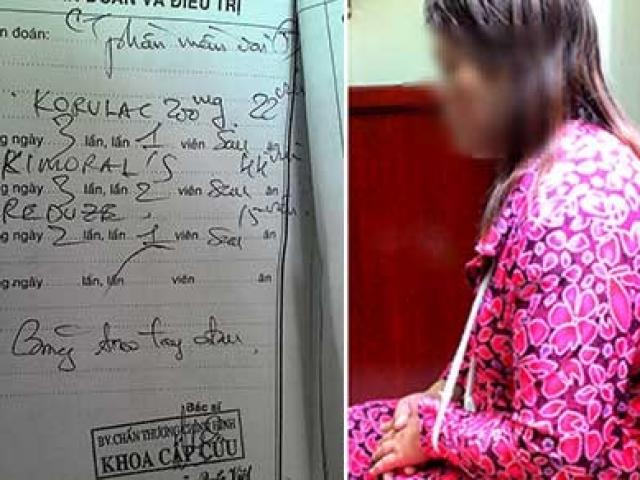 N ĐOÁN VÀ ĐIỀU TRỊ
n đoán: CT phần mềm vai (P)
KORULAC 200mg 22 viên
ng ngày 3 lần, lần 1 viên Sau ăn
KIMORAL'S 44 viên
ng ngày 3 lần, lần 2 viên Sau ăn
REDUZE 15 viên
ng ngày 2 lần, lần 1 viên Sau ăn
ng ngày lần, lần viên ăn
treo tay đau.
Bác sĩ
BV. CHẤN THƯƠNG CHỈNH HÌNH
KHOA CẤP CỨU